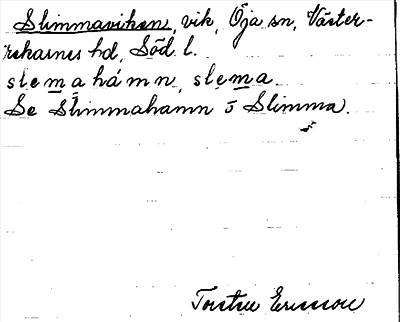 Slimmaviken, vik, Öja sn, Väster-
rekarnes hd, Söd. l.
slemahámn, slema
Se Slimmahamn o Slimma.
Torsten Ericsson